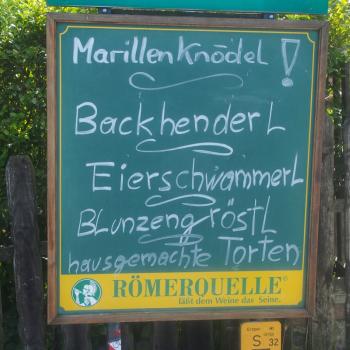 Marillen Knödel !
Backhenderl
Eierschwammerl
Blunzengröstl
hausgemachte Torten
RÖMERQUELLE
läßt dem Weine das Seine.
S 32